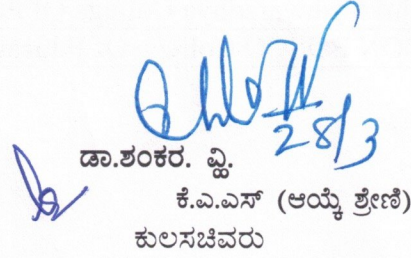 28/3
ಡಾ.ಶಂಕರ. ವ್ಹಿ.
ಕೆ.ಎ.ಎಸ್ (ಆಯ್ಕೆ ಶ್ರೇಣಿ)
ಕುಲಸಚಿವರು